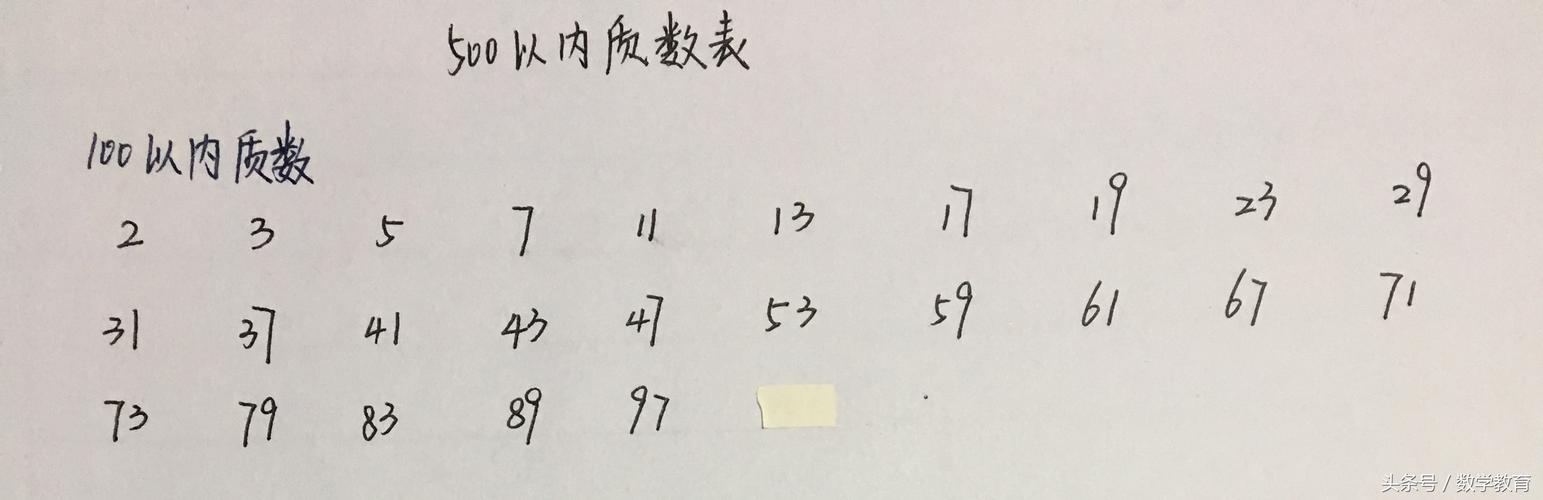 500以内质数表
100以内质数
2 3 5 7 11 13 17 19 23 29
31 37 41 43 47 53 59 61 67 71
73 79 83 89 97
头条号 / 数学教育